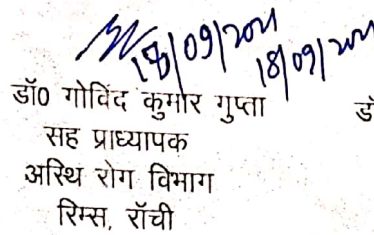 18/09/2021
18/09/2021
डॉ0 गोविंद कुमार गुप्ता डॉ
सह प्राध्यापक
अस्थि रोग विभाग
रिम्स, रॉची